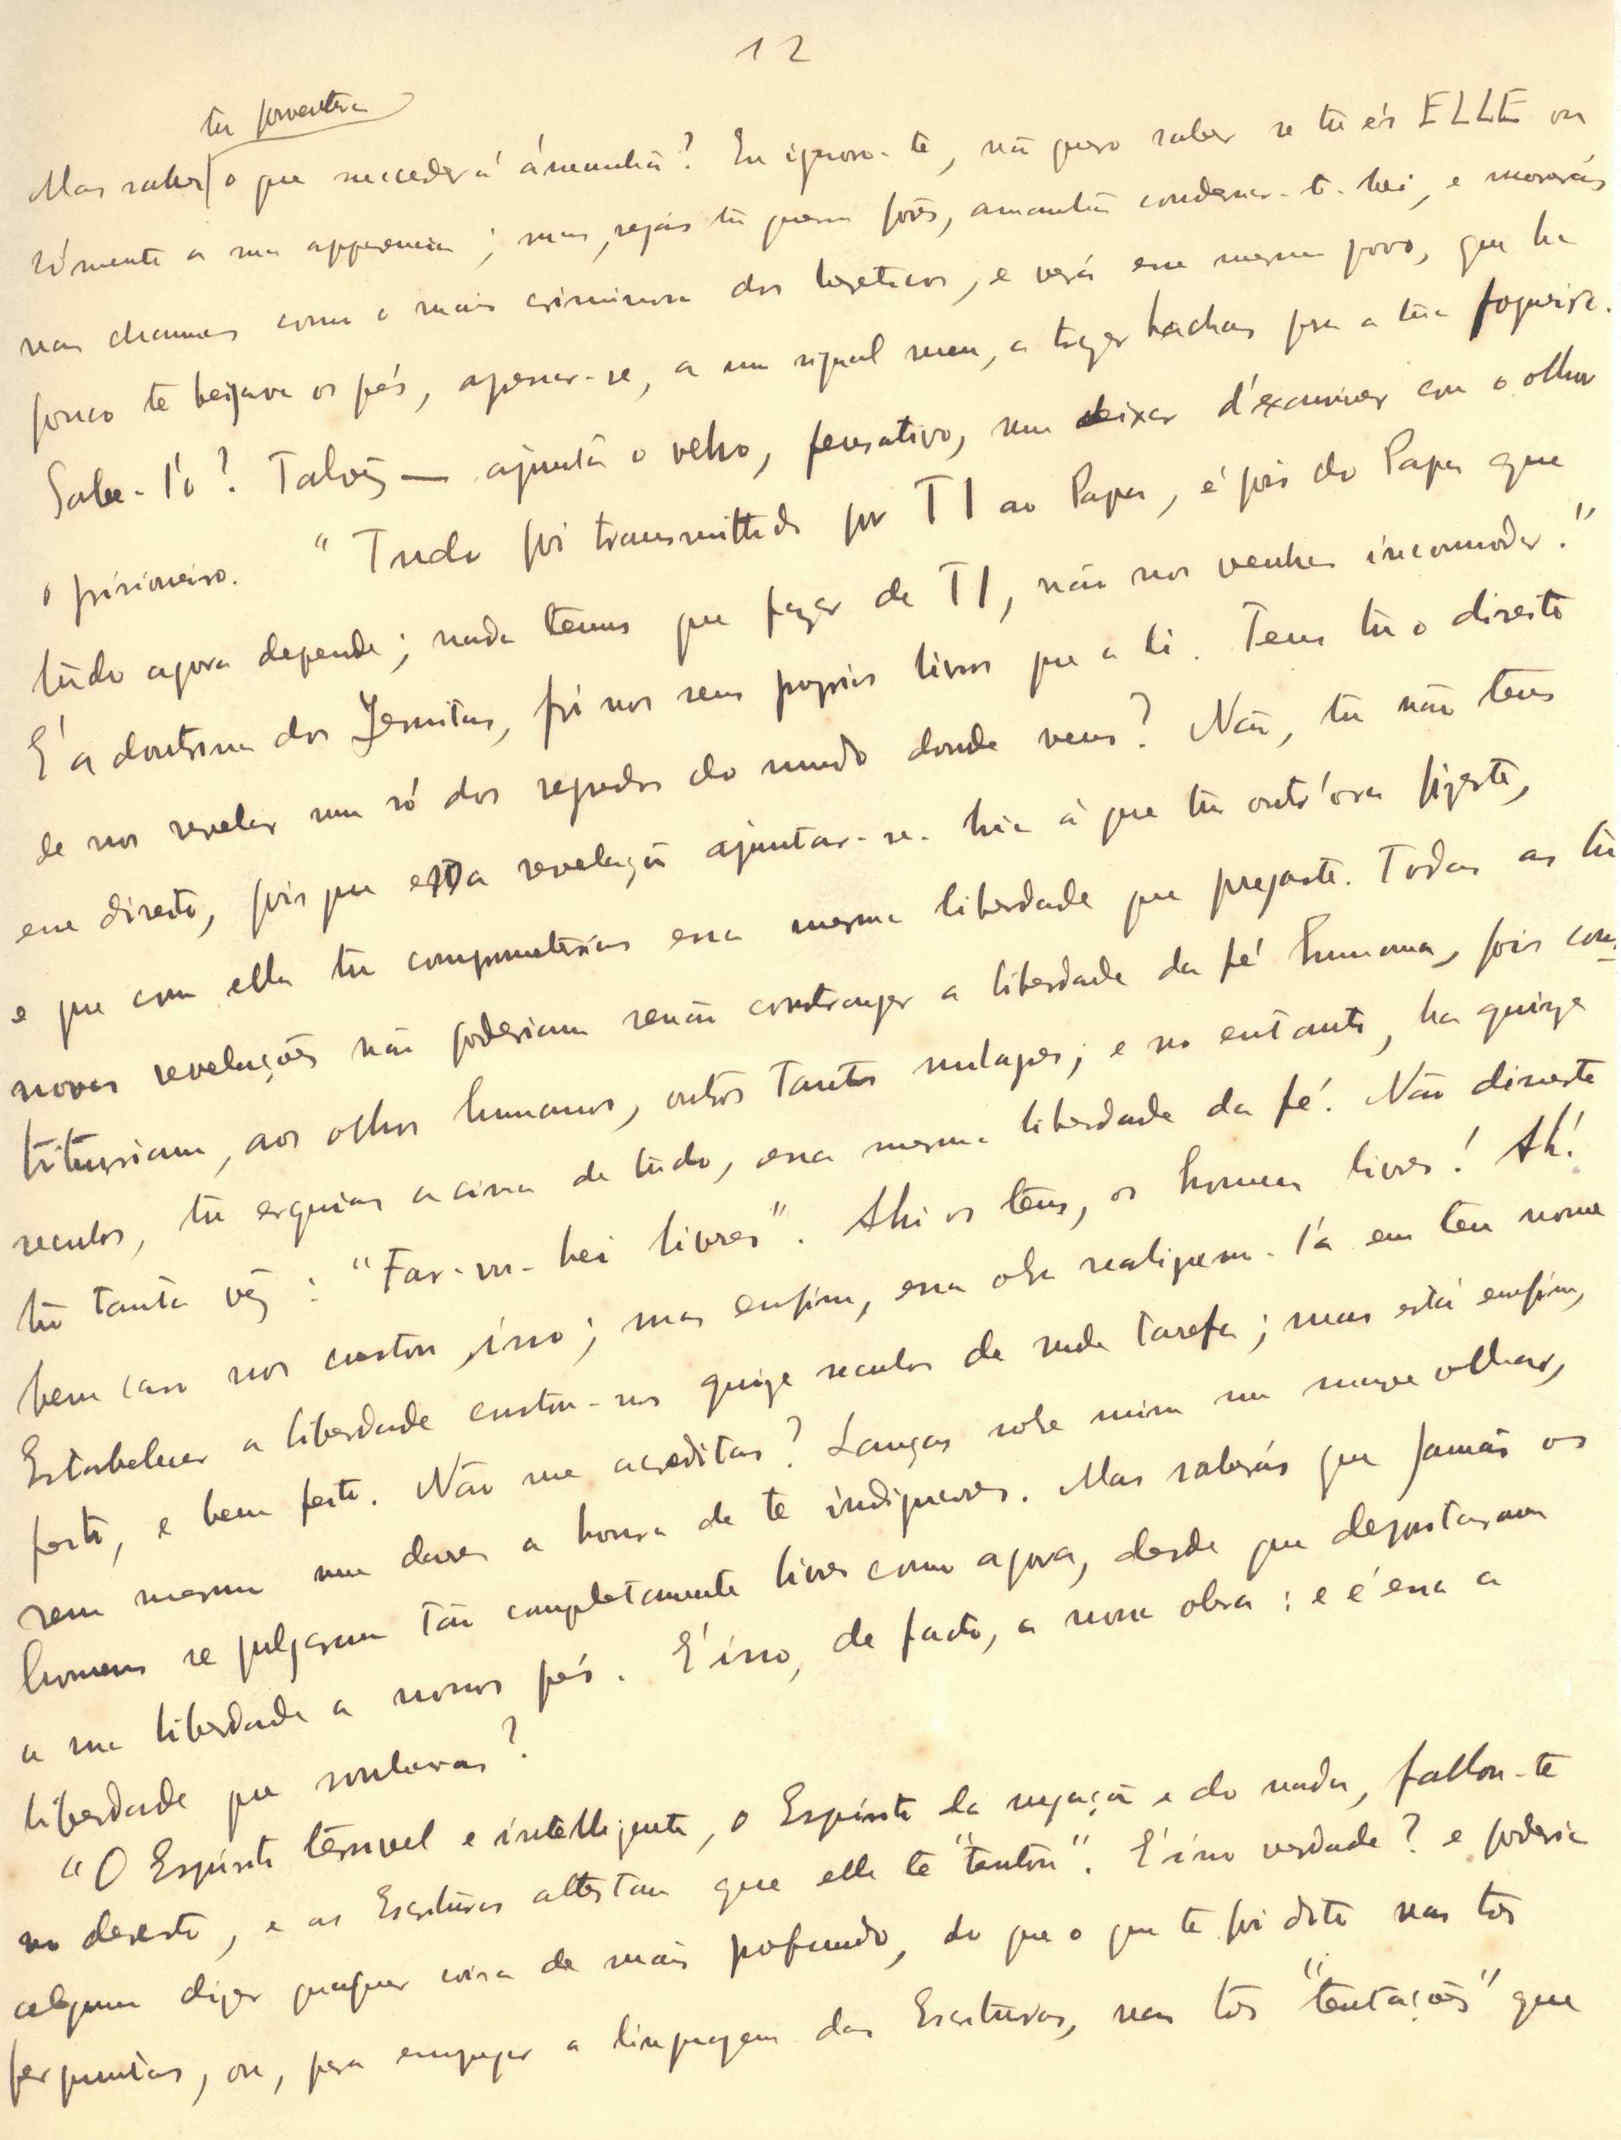 12
tu porventura
Mas sabes o que succederá ámanhã? Eu ignoro-te, não quero saber se tu és ELLE ou
sómente a sua apparencia; mas, sejas tu quem fôres, amanhã condemnar-te-hei, e morrerás
nas chammas como o mais criminoso dos hereticos, e verás esse mesmo povo, que ha
pouco te beijava os pés, apressar-se, a um signal meu, a trazer hachas para a tua fogueira.
Sabe-l'o? Talvez — ajunta o velho, pensativo, sem deixar d'examinar com o olhar
o prisioneiro. "Tudo foi transmittido por TI ao Papa, é pois do Papa que
tudo agora depende; nada temos que fazer de TI, não nos venhas incommodar."
É a doutrina dos Jesuitas, foi nos seus proprios livros que a li. Tens tu o direito
de nos revelar um só dos segredos do mundo donde vens? Não, tu não tens
esse direito, pois que essa revelação ajuntar-se-hia á que tu outr'ora fizeste,
e que com ella tu comprometterias essa mesma liberdade que pregaste. Todas as tu
novas revelações não poderiam senão constranger a liberdade da fé humana, pois cons-
tituiriam, aos olhos humanos, outros tantos milagres; e no entanto, ha quinze
seculos, tu erguias acima de tudo, essa mesma liberdade da fé. Não disseste
tu tanta vez: "Far-vos-hei livres". Ahi os tens, os homens livres! Ah!
bem caro nos custou isso; mas emfim, essa obra realizem-l'a em teu nome
Estabelecer a liberdade custou-nos quinze seculos de rude tarefa; mas está emfim,
feito, e bem feito. Não me acreditas? Lanças sobre mim um suave olhar,
sem mesmo me dares a honra de te indignares. Mas saberás que jamais os
homens se julgaram tão completamente livres como agora, desde que depositaram
a sua liberdade a nossos pés. É isso, de facto, a nossa obra: e é essa a
liberdade que sonhavas?
"O Espirito terrivel e intelligente, o Espirito da negação e do nada, fallou-te
no deserto, e as Escrituras attestam que elle te "tentou". É isso verdade? e poderia
alguem dizer qualquer coisa de mais profundo, do que o que te foi dito nas tres
perguntas, ou, para empregar a linguagem das Escrituras, nas tres "tentações" que